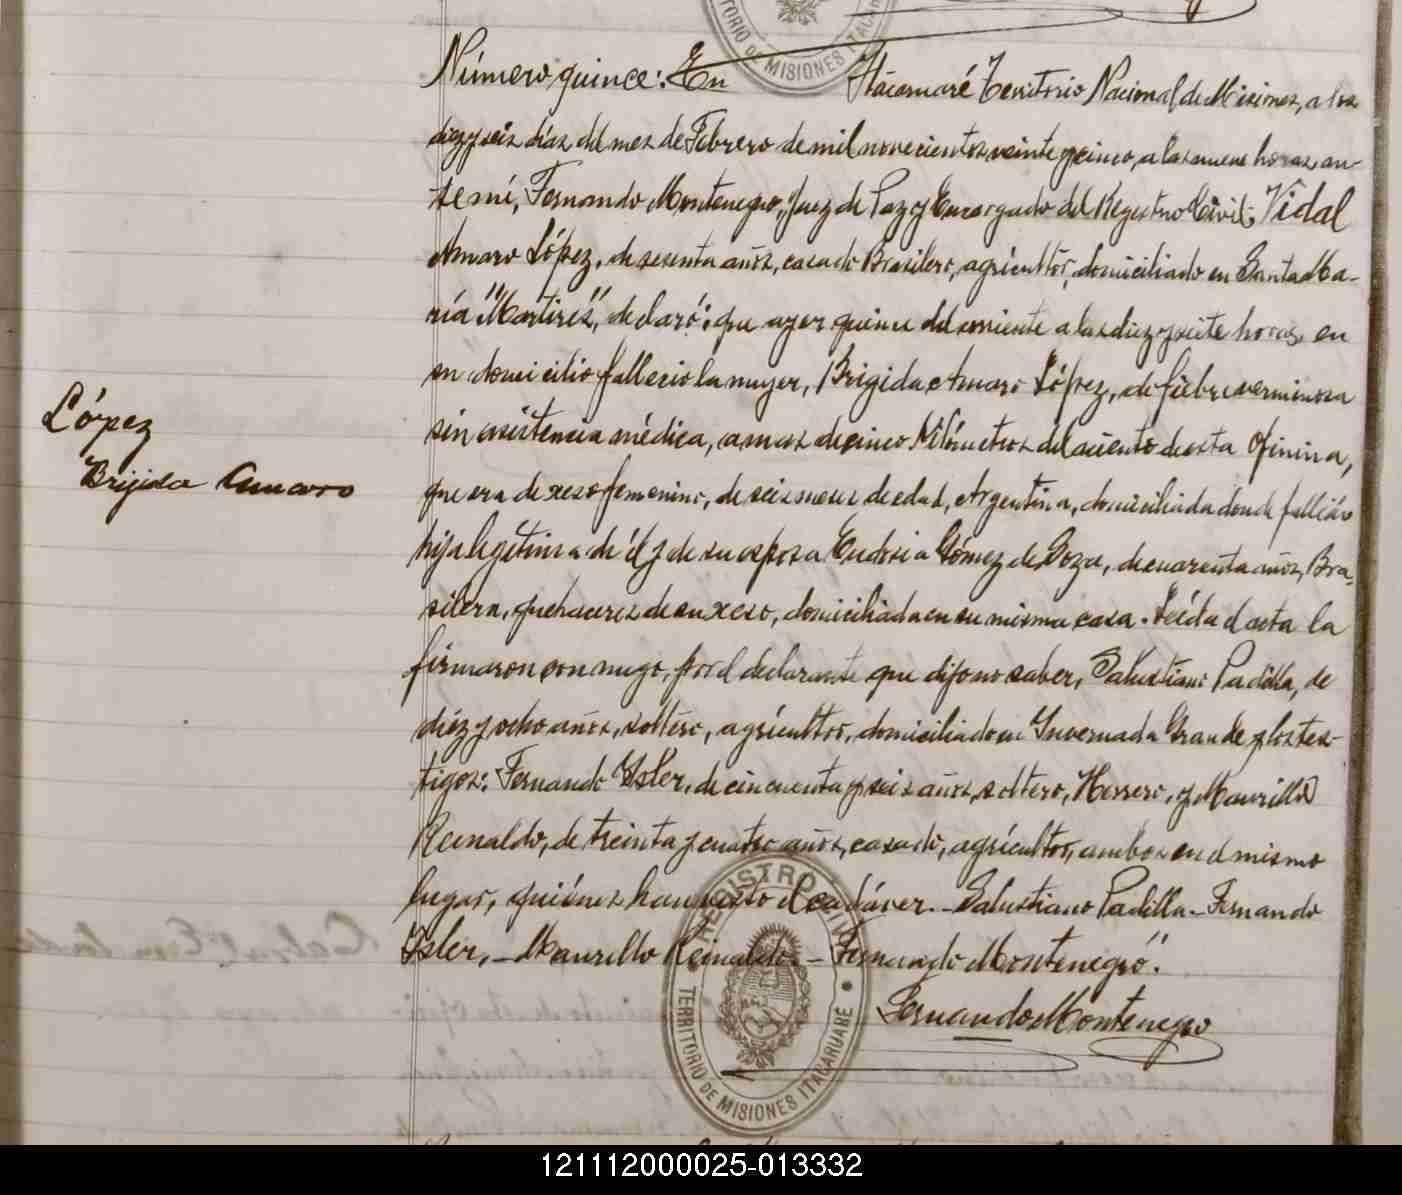 TERRITORIO DE MISIONES ITACARUARÉ
Número quince: En Itacaruaré Territorio Nacional de Misiones, a los
diez y seis días del mes de Febrero de mil novecientos veinte y cinco, a las nueve horas, an-
te mí, Fernando Montenegro, Juez de Paz y Encargado del Registro Civil; Vidal
Amaro López, de sesenta años, casado Brasilero, agricultor, domiciliado en Santa Ma-
ría "Martires", declaró: que ayer quince del corriente a las diez y siete horas, en
su domicilio fallecio la mujer, Brigida Amaro López, de fiebre verminosa
sin asistencia médica, a mas de cinco Kilómetros del asiento de esta Oficina,
que era de xeso femenino, de seis meses de edad, Argentina, domiciliada donde falleció
hija legítima de él y de su esposa Eudosia Gómez de Soza, de cuarenta años, Bra-
silera, quehaceres de su xeso, domiciliada en su misma casa. Leída el acta la
firmaron conmigo, por el declarante que dijo no saber, Salustiano Padilla, de
diez y ocho años, soltero, agricultor, domiciliado en Invernada Grande y los tes-
tigos: Fernando Isler, de cincuenta y seis años, soltero, Herrero, y Maurillo
Reinaldo, de treinta y cuatro años, casado, agricultor, ambos en el mismo
lugar, quiénes han visto el cadáver.- Salustiano Padilla.- Fernando
Isler.- Maurillo Reinaldo.- Fernando Montenegro".
Fernando Montenegro
López
Brijida Amaro
REGISTRO CIVIL
TERRITORIO DE MISIONES ITACARUARÉ
121112000025-013332